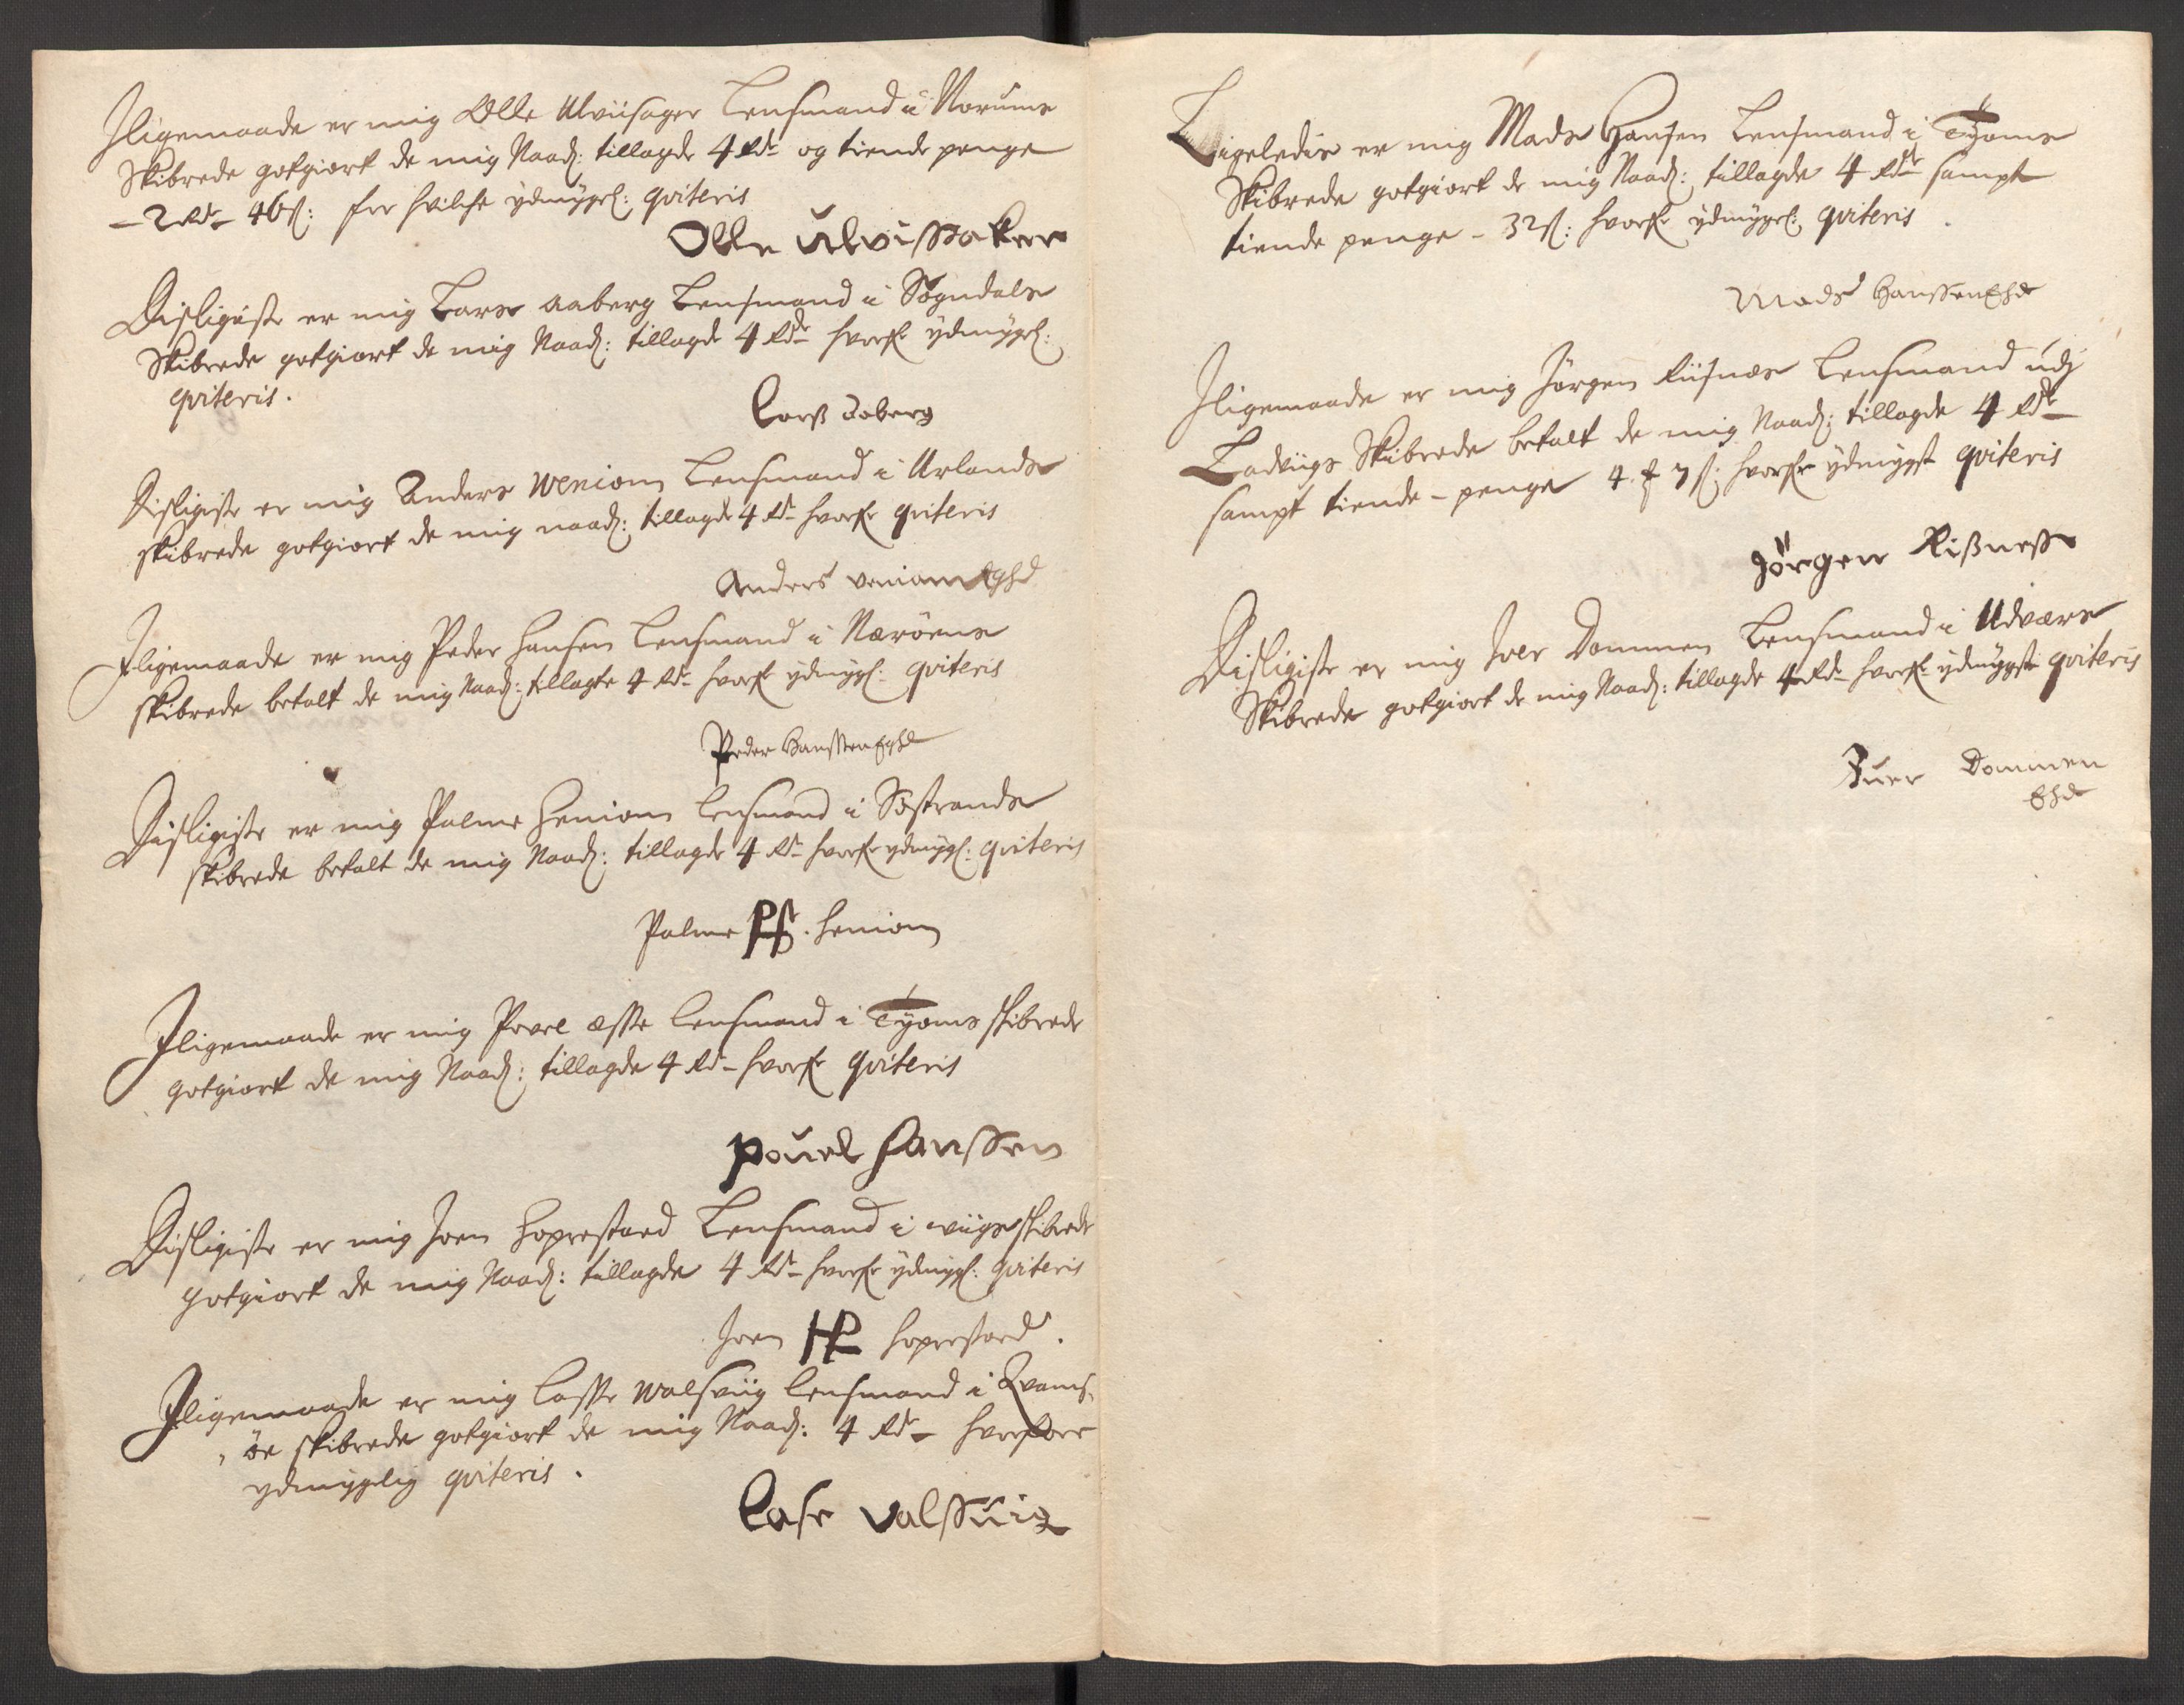 Jligemaade er mig Olle Ulviisager Lensmand i Norums
Skibrede gotgiort de mig Naad: tillagde 4 Rdr og tiende penge
– 2 Rdr 46 s: for hvilche ydmygel: qviteris
Olle Ulvissaker
Disligiste er mig Lars aaberg Lensmand i Sogndals
Skibrede gotgiort de mig Naad: tillagde 4 Rdr hvorfr ydmygel:
qviteris.
Larß aaberg
Disligiste er mig Anders Weniom Lensmand i Urlands
skibrede gotgiort de mig naad: tillagde 4 Rdr hvorfr qviteris
Anders veniom Eghd
Jligemaade er mig Peder Hansen Lensmand i Nærøens
skibrede betalt de mig Naad: tillagte 4 Rdr hvorfr ydmygl: qviteris
Peder Hanssen Eghd
Disligiste er mig Palme Heniom Lensmand i Sostrands
skibrede betalt de mig Naad: tillagde 4 Rdr hvorfr ydmygl: qviteris
Palme heniom
Jligemaade er mig Povel æsse Lensmand i Tyoms skibrede
gotgiort de mig Naad: tillagde 4 Rdr hvorfr qviteris
Pouel Hanssen
Disligiste er mig Joen Hoprestad Lensmand i wiigs skibrede
gotgiort de mig Naad: tillagde 4 Rdr hvorfr ydmygl: qviteris
Joen HP hoprestad.
Jligemaade er mig Lasse Walsviig Lensmand i Qvams,
, øe skibrede gotgiort de mig Naad: 4 Rdr hvorfore
ydmygelig qviteris.
Lase Valssuig
Ligeledis er mig Mads Hansen Lensmand i Tyoms
Skibrede gotgiort de mig Naad: tillagde 4 Rdr sampt
tiende penge – 32 s: hvorfr ydmygel: qviteris.
Mads Hanssen Ehd
Jligemaade er mig Jørgen Riisnæs Lensmand udj
Ladviigs Skibrede betalt de mig Naad: tillagde 4 Rdr
sampt tiende-penge 4 7 s: hvorfr ydmygst qviteris
Jørgen Rißness
Disligiste er mig Iver Dommen Lensmand i Udværs
Skibrede gotgiort de mig Naad: tillagde 4 Rdr hvorfr ydmygst qviteris
Iuer Dommen
Ehd